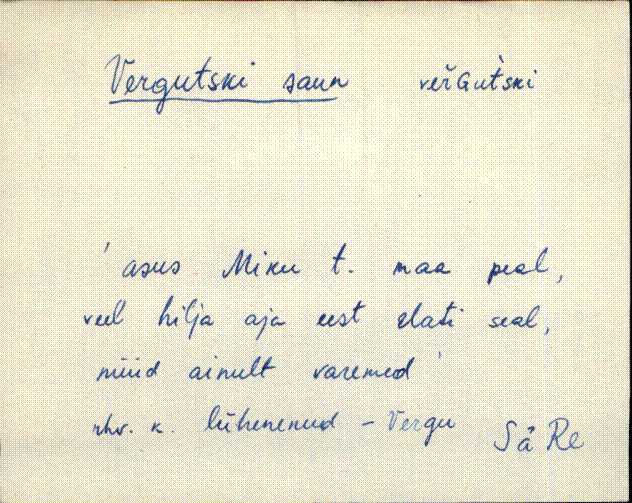 Vergutski saun veřGut̀ski
'asus Miku t. maa peal,
veel hilja aja eest elati seal,
nüüd ainult varemed'
rhv. k. lühenenud - Vergu
Sä Re